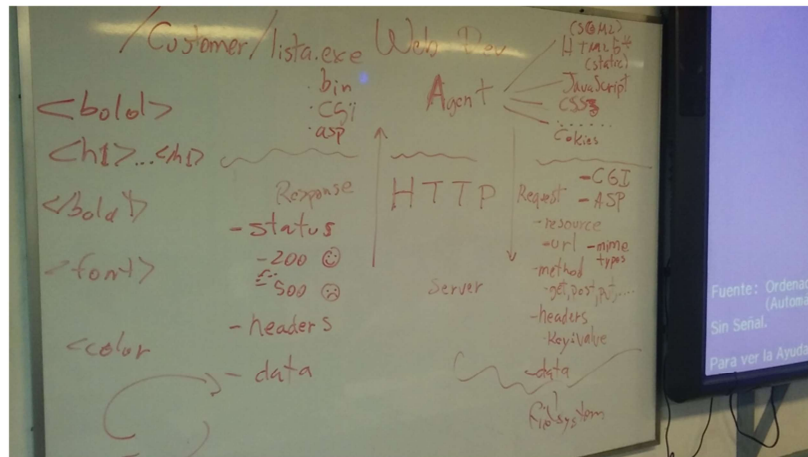 /Customer/lista.exe Web Dev
.bin
.CGI
.asp
<bold>
<h1>...<h1>
</bold>
<font>
<color
Agent
(SGML)
HTML5
(static)
JavaScript
CSS3
Cokies
Response
-status
-200
500
-headers
-data
HTTP
Server
Request
-CGI
-ASP
-resource
-url -mime
types
-method
-get, post, put, ...
-headers
-Key:value
-data
filesystem
Fuente: Ordenad
(Automa
Sin Señal.
Para ver la Ayuda